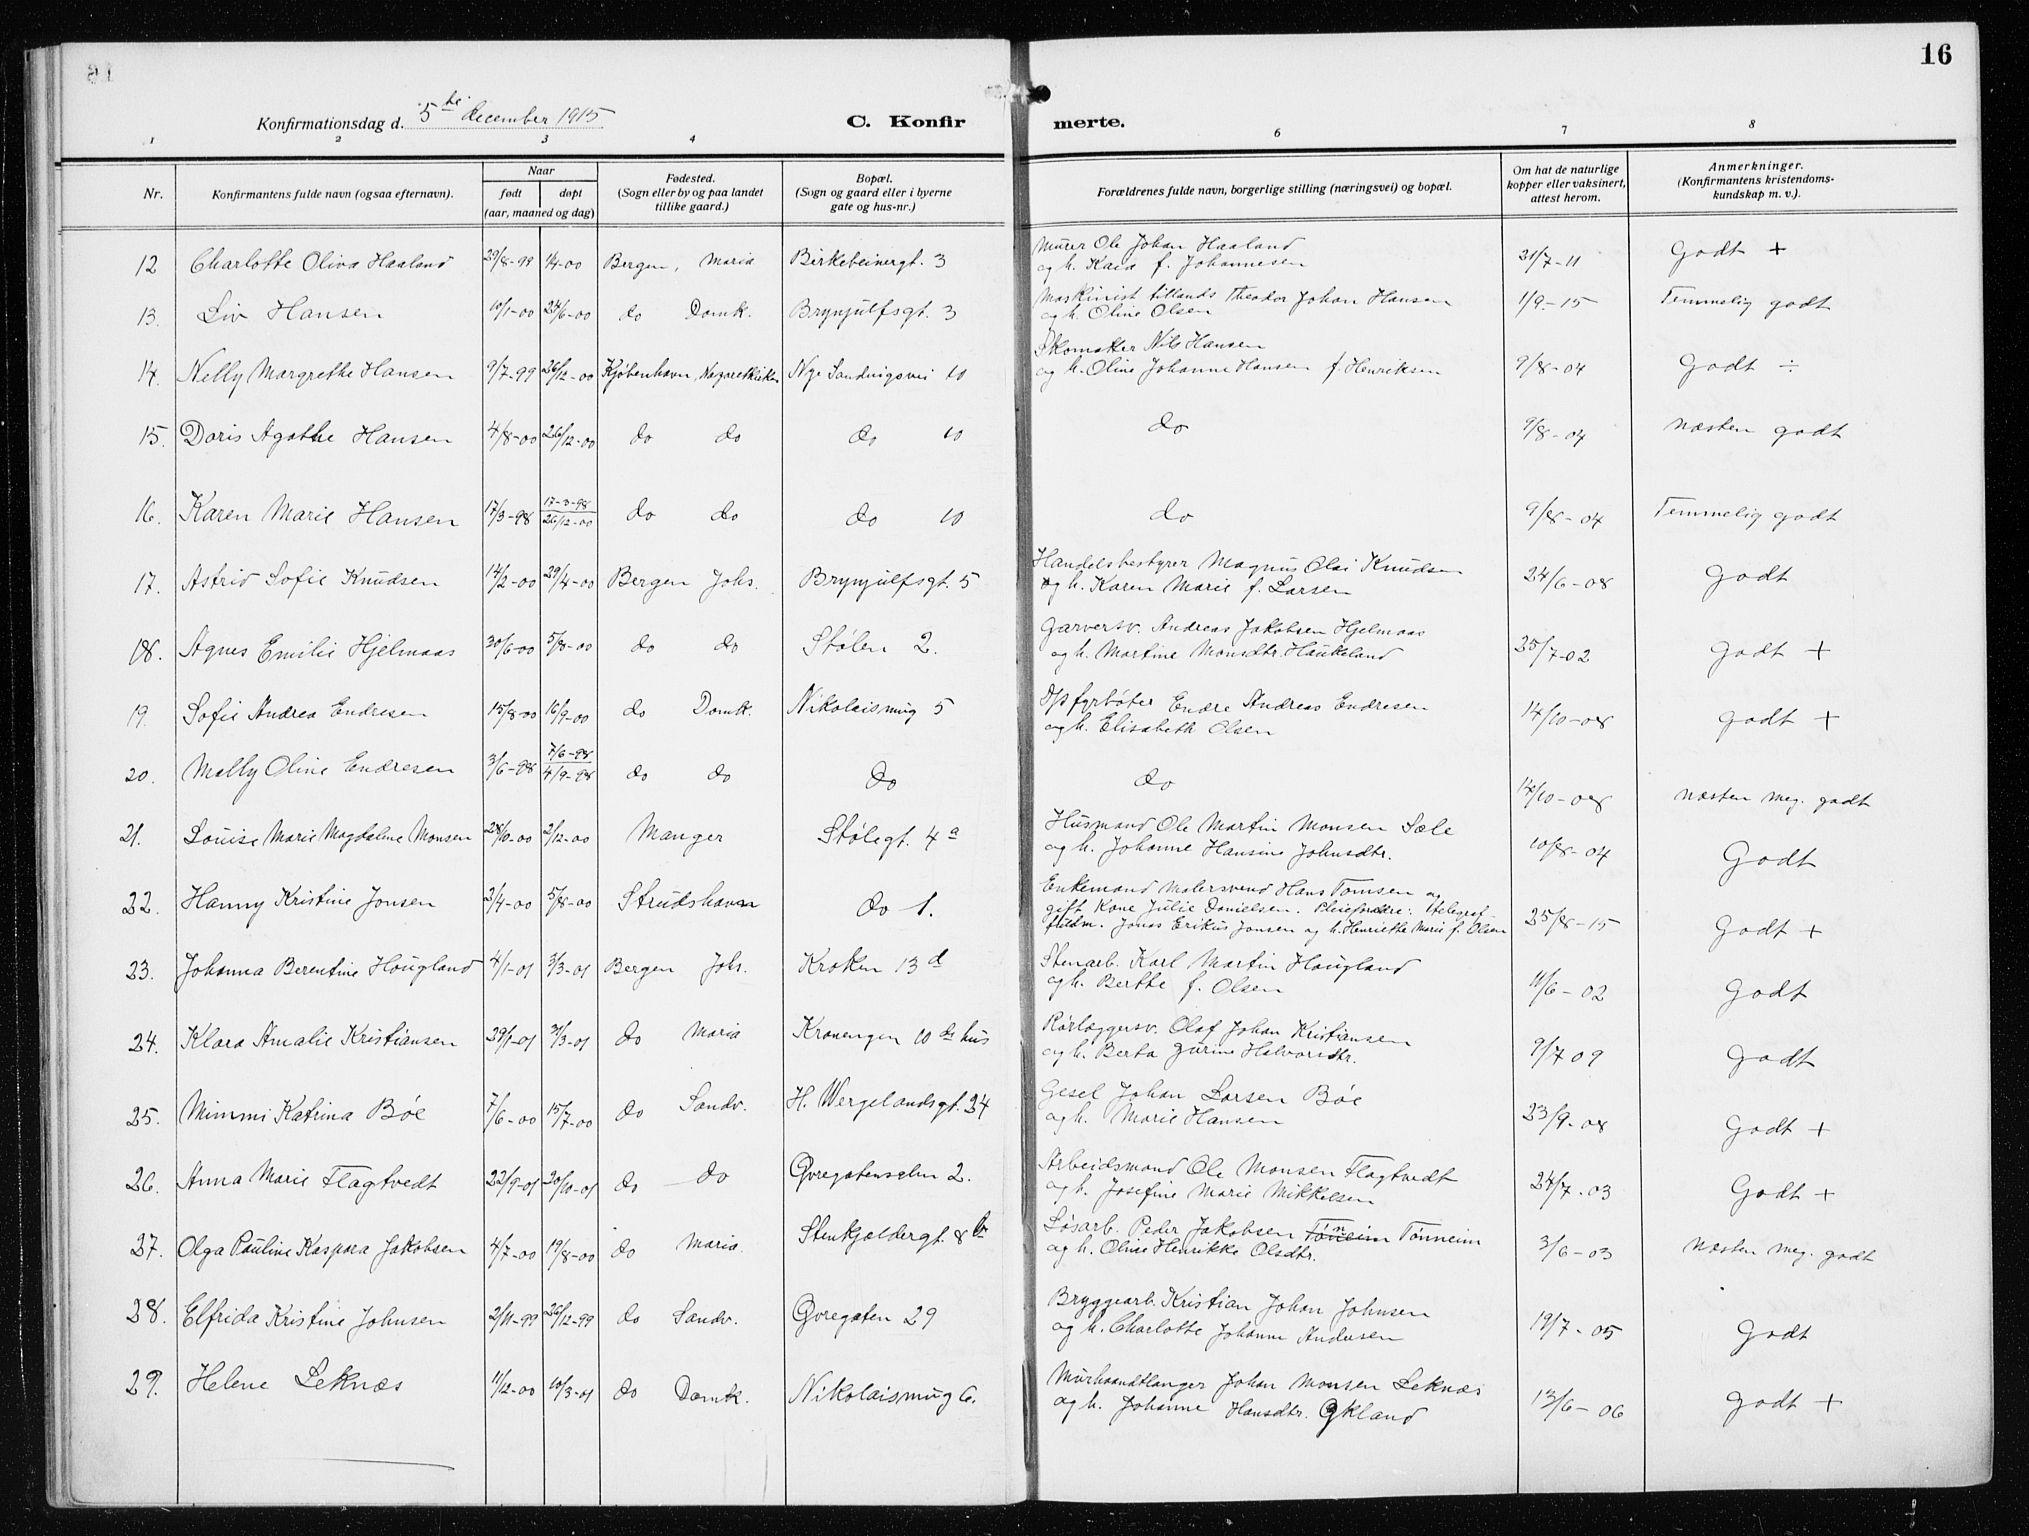 16
Konfirmationsdag d. 5te december 1915
C. Konfir merte.
1 2 3 4 6 7 8
Nr. Konfirmantens fulde navn (ogsaa efternavn). Naar født døpt (aar, maaned og dag) Fødested. (Sogn eller by og paa landet tillike gaard.) Bopæl. (Sogn og gaard eller i byerne gate og hus-nr.) Forældrenes fulde navn, borgerlige stilling (næringsvei) og bopæl. Om hat de naturlige kopper eller vaksinert, attest herom. Anmerkninger. (Konfirmantens kristendoms-kundskap m. v.).
12 Charlotte Oliva Haaland 29/8-99 1/4-00 Bergen, Maria Birkebeinergt. 3 Murer Ole Johan Haaland 21/7-11 Godt +
og h. Kaia f. Johannesen
13. Liv Hansen 10/1-00 24/6-00 do Domk. Brynjulfsgt. 3 Maskinist tillands Theodor Johan Hansen 1/9-15 Temmelig godt
og h. Oline Olsen
14. Nelly Margrethe Hansen 9/7-99 26/12-00 Kjøbenhavn, Nazarethkirken Nye Sandvigsvei 10 Skomaker Nils Hansen 9/8-04 Godt ÷
og h. Oline Johanne Hansen f. Henriksen
15. Doris Agathe Hansen 4/8-00 26/12-00 do do do 10 do 9/8-04 Næsten godt
16. Karen Marie Hansen 17/3-98 17-3-98 26/12-00 do do do 10 do 9/8-04 Temmelig godt
17. Astrid Sofie Knudsen 14/2-00 29/4-00 Bergen Johs. Brynjulfsgt. 5 Handelsbestyrer Magnus Olai Knudsen 24/6-08 Godt
og h. Karen Marie f. Larsen
18. Agnes Emilie Hjelmaas 30/6-00 5/8-00 do do Stølen 2. Garversv. Andreas Jakobsen Hjelmaas 25/7-02 Godt +
og h. Martine Monsdtr. Haukeland
19. Sofie Andrea Endresen 15/8-00 16/9-00 do Domk. Nikolaismug 5 D/s fyrbøter Endre Andreas Endresen 14/10-08 Godt +
og h. Elisabeth Olsen
20. Molly Oline Endresen 3/6-98 7/6-98 4/9-98 do do do do 14/10-08 Næsten meg. godt
21. Louise Marie Magdalene Monsen 28/10-00 2/12-00 Manger Stølegt. 4a Husmand Ole Martin Monsen Sæle 10/8-04 Godt
og h. Johanne Hansine Johnsdtr.
22. Hanny Kristine Jonsen 2/4-00 5/8-00 Strudshavn do 1. Enkemand Malersvend Hans Tomsen og 25/8-15 Godt +
gift Kone Julie Danielsen. Pleieforældre: Telegraf-
fuldm. Jonas Erikus Jonsen og h. Henriette Marie f. Olsen
23. Johanna Berentine Hougland 4/1-01 3/3-01 Bergen Johs. Kroken 13d Stenarb. Karl Martin Hougland 11/6-02 Godt
og h. Berthe f. Olsen
24. Klara Amalie Kristiansen 29/1-01 31/3-01 do Maria Kronengen 10de hus Rørlæggersv. Olaf Johan Kristiansen 9/7 09 Godt
og h. Berta Gurine Halvorsdtr.
25. Mimmi Katrina Bøe 7/6-00 15/7-00 do Sandv. H. Wergelandsgt. 24 Gesel Johan Larsen Bøe 23/9-08 Godt +
og h. Marie Hansen
26. Anna Marie Flagtvedt 22/9-01 20/10-01 do do Øvregatensalm 2. Arbeidsmand Ole Monsen Flagtvedt 24/7-03 Godt +
og h. Josefine Marie Mikkelsen
27. Olga Pauline Kaspara Jakobsen 4/7-00 19/8-00 do Maria Stenkjeldergt. 8b Løsarb. Peder Jakobsen Tønneim Tønneim 3/6-03 Næsten meg. godt
og h. Oline Henrikke Olsdtr.
28. Elfrida Kristine Johnsen 2/11-99 26/12-99 do Sandv. Øvregaten 29 Bryggearb. Kristian Johan Johnsen 19/7-05 Godt
og h. Charlotte Johanne Andersen
29. Helene Leknæs 11/12-00 10/3-01 do Domk. Nikolaismug 6. Murhaandlanger Johan Monsen Leknæs 13/6-06 Godt +
og h. Johanne Hansdtr. Økland